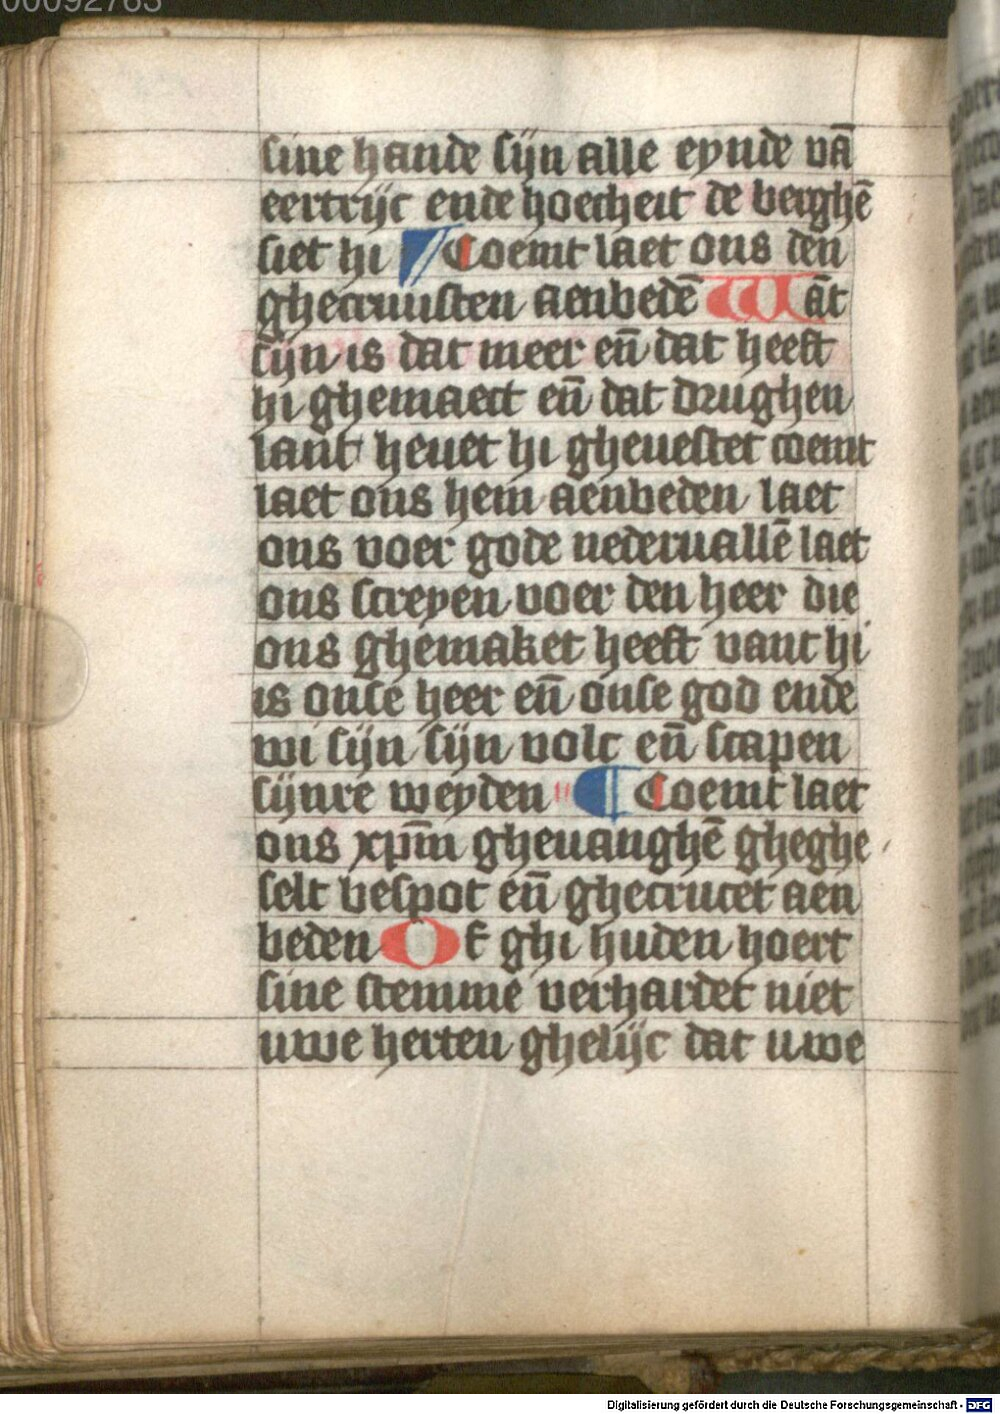 00092763
sine hande sijn alle eynde vā
eertrijc ende hoecheit de berghē
siet hi Coemt laet ons den
ghecruusten aenbedē Wāt
sijn is dat meer eñ dat heeft
hi ghemaect eñ dat drughen
lant heuet hi gheuestet coemt
laet ons hem aenbeden laet
ons voer gode nederuallē laet
ons screyen voer den heer die
ons ghemaket heeft want hi
is onse heer eñ onse god ende
wi sijn sijn volc eñ scapen
sijnre weyden ¶ Coemt laet
ons xpm̄ gheuanghē gheghe
selt bespot eñ ghecrucet aen
beden Of ghi huden hoert
sine stemme verhardet niet
uwe herten ghelijc dat uwe
Digitalisierung gefördert durch die Deutsche Forschungsgemeinschaft - DFG